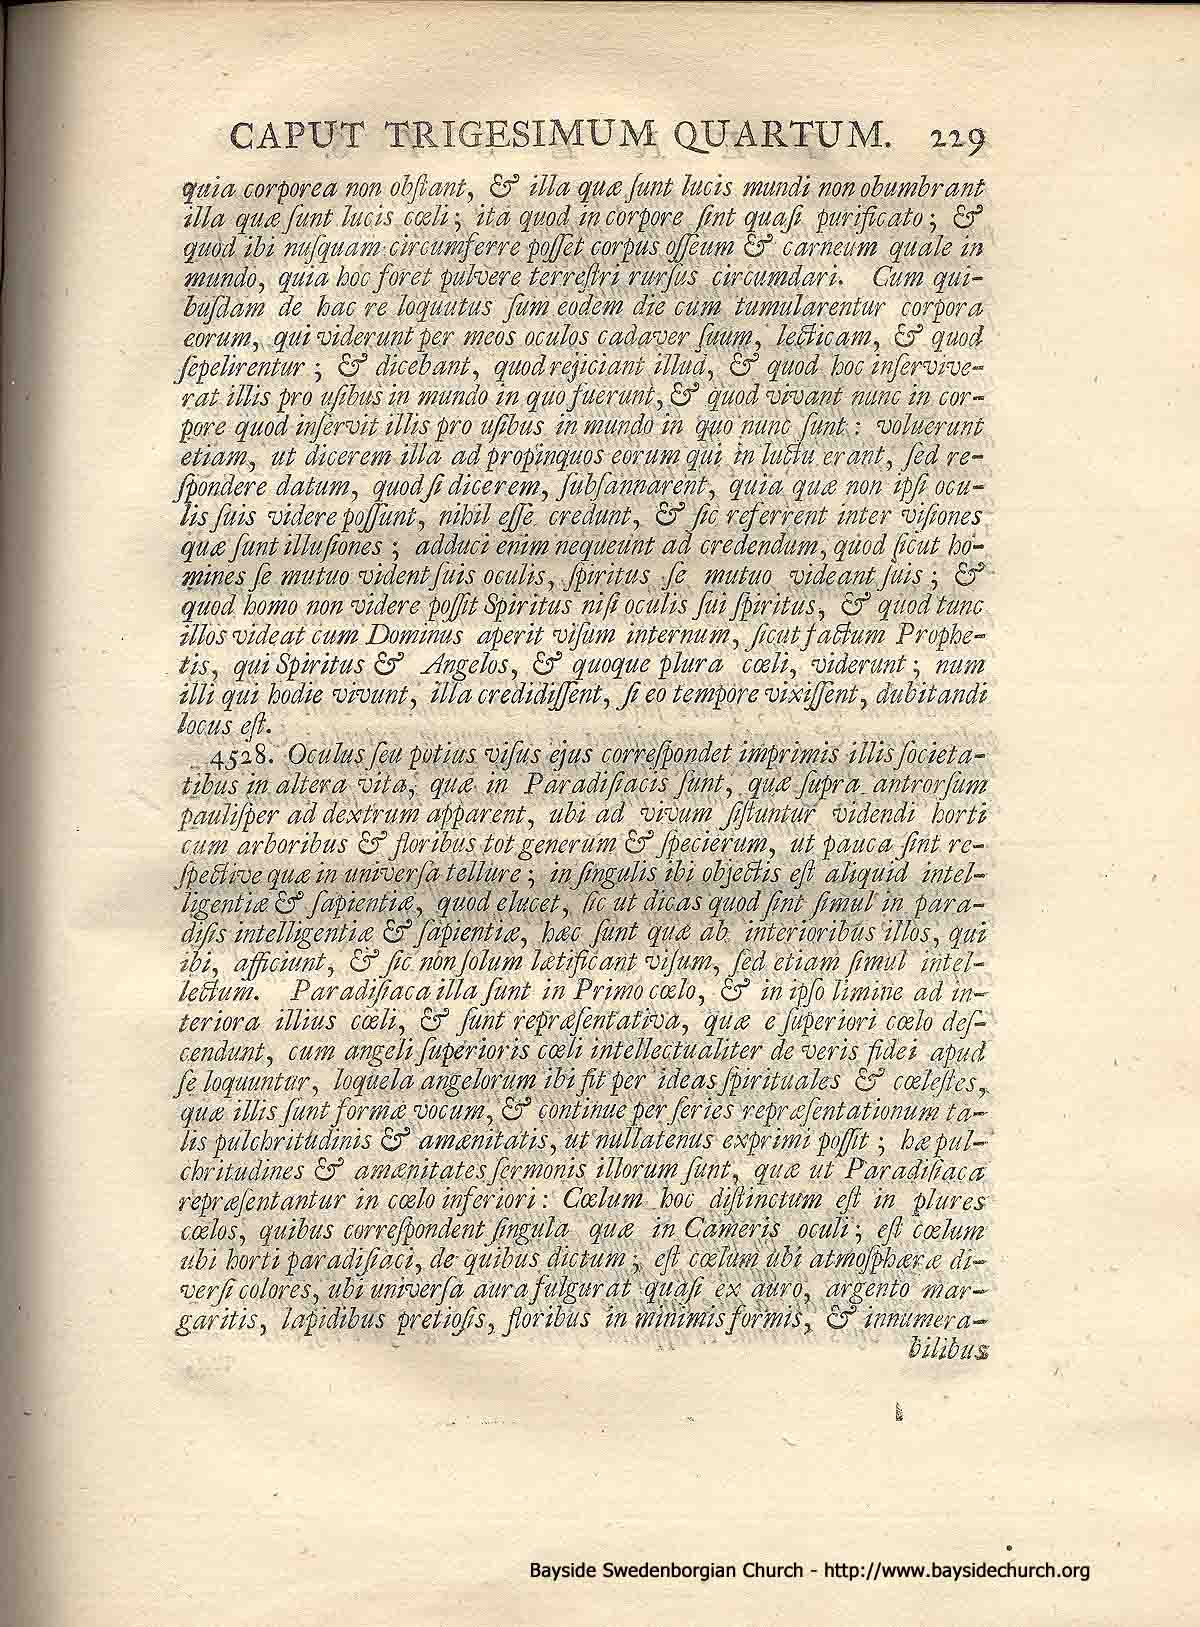 CAPUT TRIGESIMUM QUARTUM. 229
quia corporea non obſtant, & illa quæ ſunt lucis mundi non obumbrant
illa quæ ſunt lucis cœli; ita quod in corpore ſint quaſi purificato; &
quod ibi nuſquam circumferre poſſet corpus oſſeum & carneum quale in
mundo, quia hoc foret pulvere terreſtri rurſus circumdari. Cum qui-
buſdam de hac re loquutus ſum eodem die cum tumularentur corpora
eorum, qui viderunt per meos oculos cadaver ſuum, lecticam, & quod
ſepelirentur; & dicebant, quod rejiciant illud, & quod hoc inſervive-
rat illis pro uſibus in mundo in quo fuerunt, & quod vivant nunc in cor-
pore quod inſervit illis pro uſibus in mundo in quo nunc ſunt: voluerunt
etiam, ut dicerem illa ad propinquos eorum qui in luctu erant, ſed re-
ſpondere datum, quod ſi dicerem, ſubſannarent, quia quæ non ipſi ocu-
lis ſuis videre poſſunt, nihil eſſe credunt, & ſic referrent inter viſiones
quæ ſunt illuſiones; adduci enim nequeunt ad credendum, quod ſicut ho-
mines ſe mutuo vident ſuis oculis, ſpiritus ſe mutuo videant ſuis; &
quod homo non videre poſſit Spiritus niſi oculis ſui ſpiritus, & quod tunc
illos videat cum Dominus aperit viſum internum, ſicut factum Prophe-
tis, qui Spiritus & Angelos, & quoque plura cœli, viderunt; num
illi qui hodie vivunt, illa credidiſſent, ſi eo tempore vixiſſent, dubitandi
locus eſt.
4528. Oculus ſeu potius viſus ejus correſpondet imprimis illis ſocieta-
tibus in altera vita, quæ in Paradiſiacis ſunt, quæ ſupra antrorſum
pauliſper ad dextrum apparent, ubi ad vivum ſiſtuntur videndi horti
cum arboribus & floribus tot generum & ſpecierum, ut pauca ſint re-
ſpective quæ in univerſa tellure; in ſingulis ibi objectis eſt aliquid intel-
ligentiæ & ſapientiæ, quod elucet, ſic ut dicas quod ſint ſimul in para-
diſis intelligentiæ & ſapientiæ, hæc ſunt quæ ab interioribus illos, qui
ibi, afficiunt, & ſic non ſolum lætificant viſum, ſed etiam ſimul intel-
lectum. Paradiſiaca illa ſunt in Primo cœlo, & in ipſo limine ad in-
teriora illius cœli, & ſunt repræſentativa, quæ e ſuperiori cœlo deſ-
cendunt, cum angeli ſuperioris cœli intellectualiter de veris fidei apud
ſe loquuntur, loquela angelorum ibi fit per ideas ſpirituales & cœleſtes,
quæ illis ſunt formæ vocum, & continue per ſeries repræſentationum ta-
lis pulchritudinis & amænitatis, ut nullatenus exprimi poſſit; hæ pul-
chritudines & amænitates ſermonis illorum ſunt, quæ ut Paradiſiaca
repræſentantur in cœlo inferiori: Cœlum hoc diſtinctum eſt in plures
cœlos, quibus correſpondent ſingula quæ in Cameris oculi; eſt cœlum
ubi horti paradiſiaci, de quibus dictum; eſt cœlum ubi atmoſphæræ di-
verſi colores, ubi univerſa aura fulgurat quaſi ex auro, argento mar-
garitis, lapidibus pretioſis, floribus in minimis formis, & innumera-
bilibus
Bayside Swedenborgian Church - http://www.baysidechurch.org